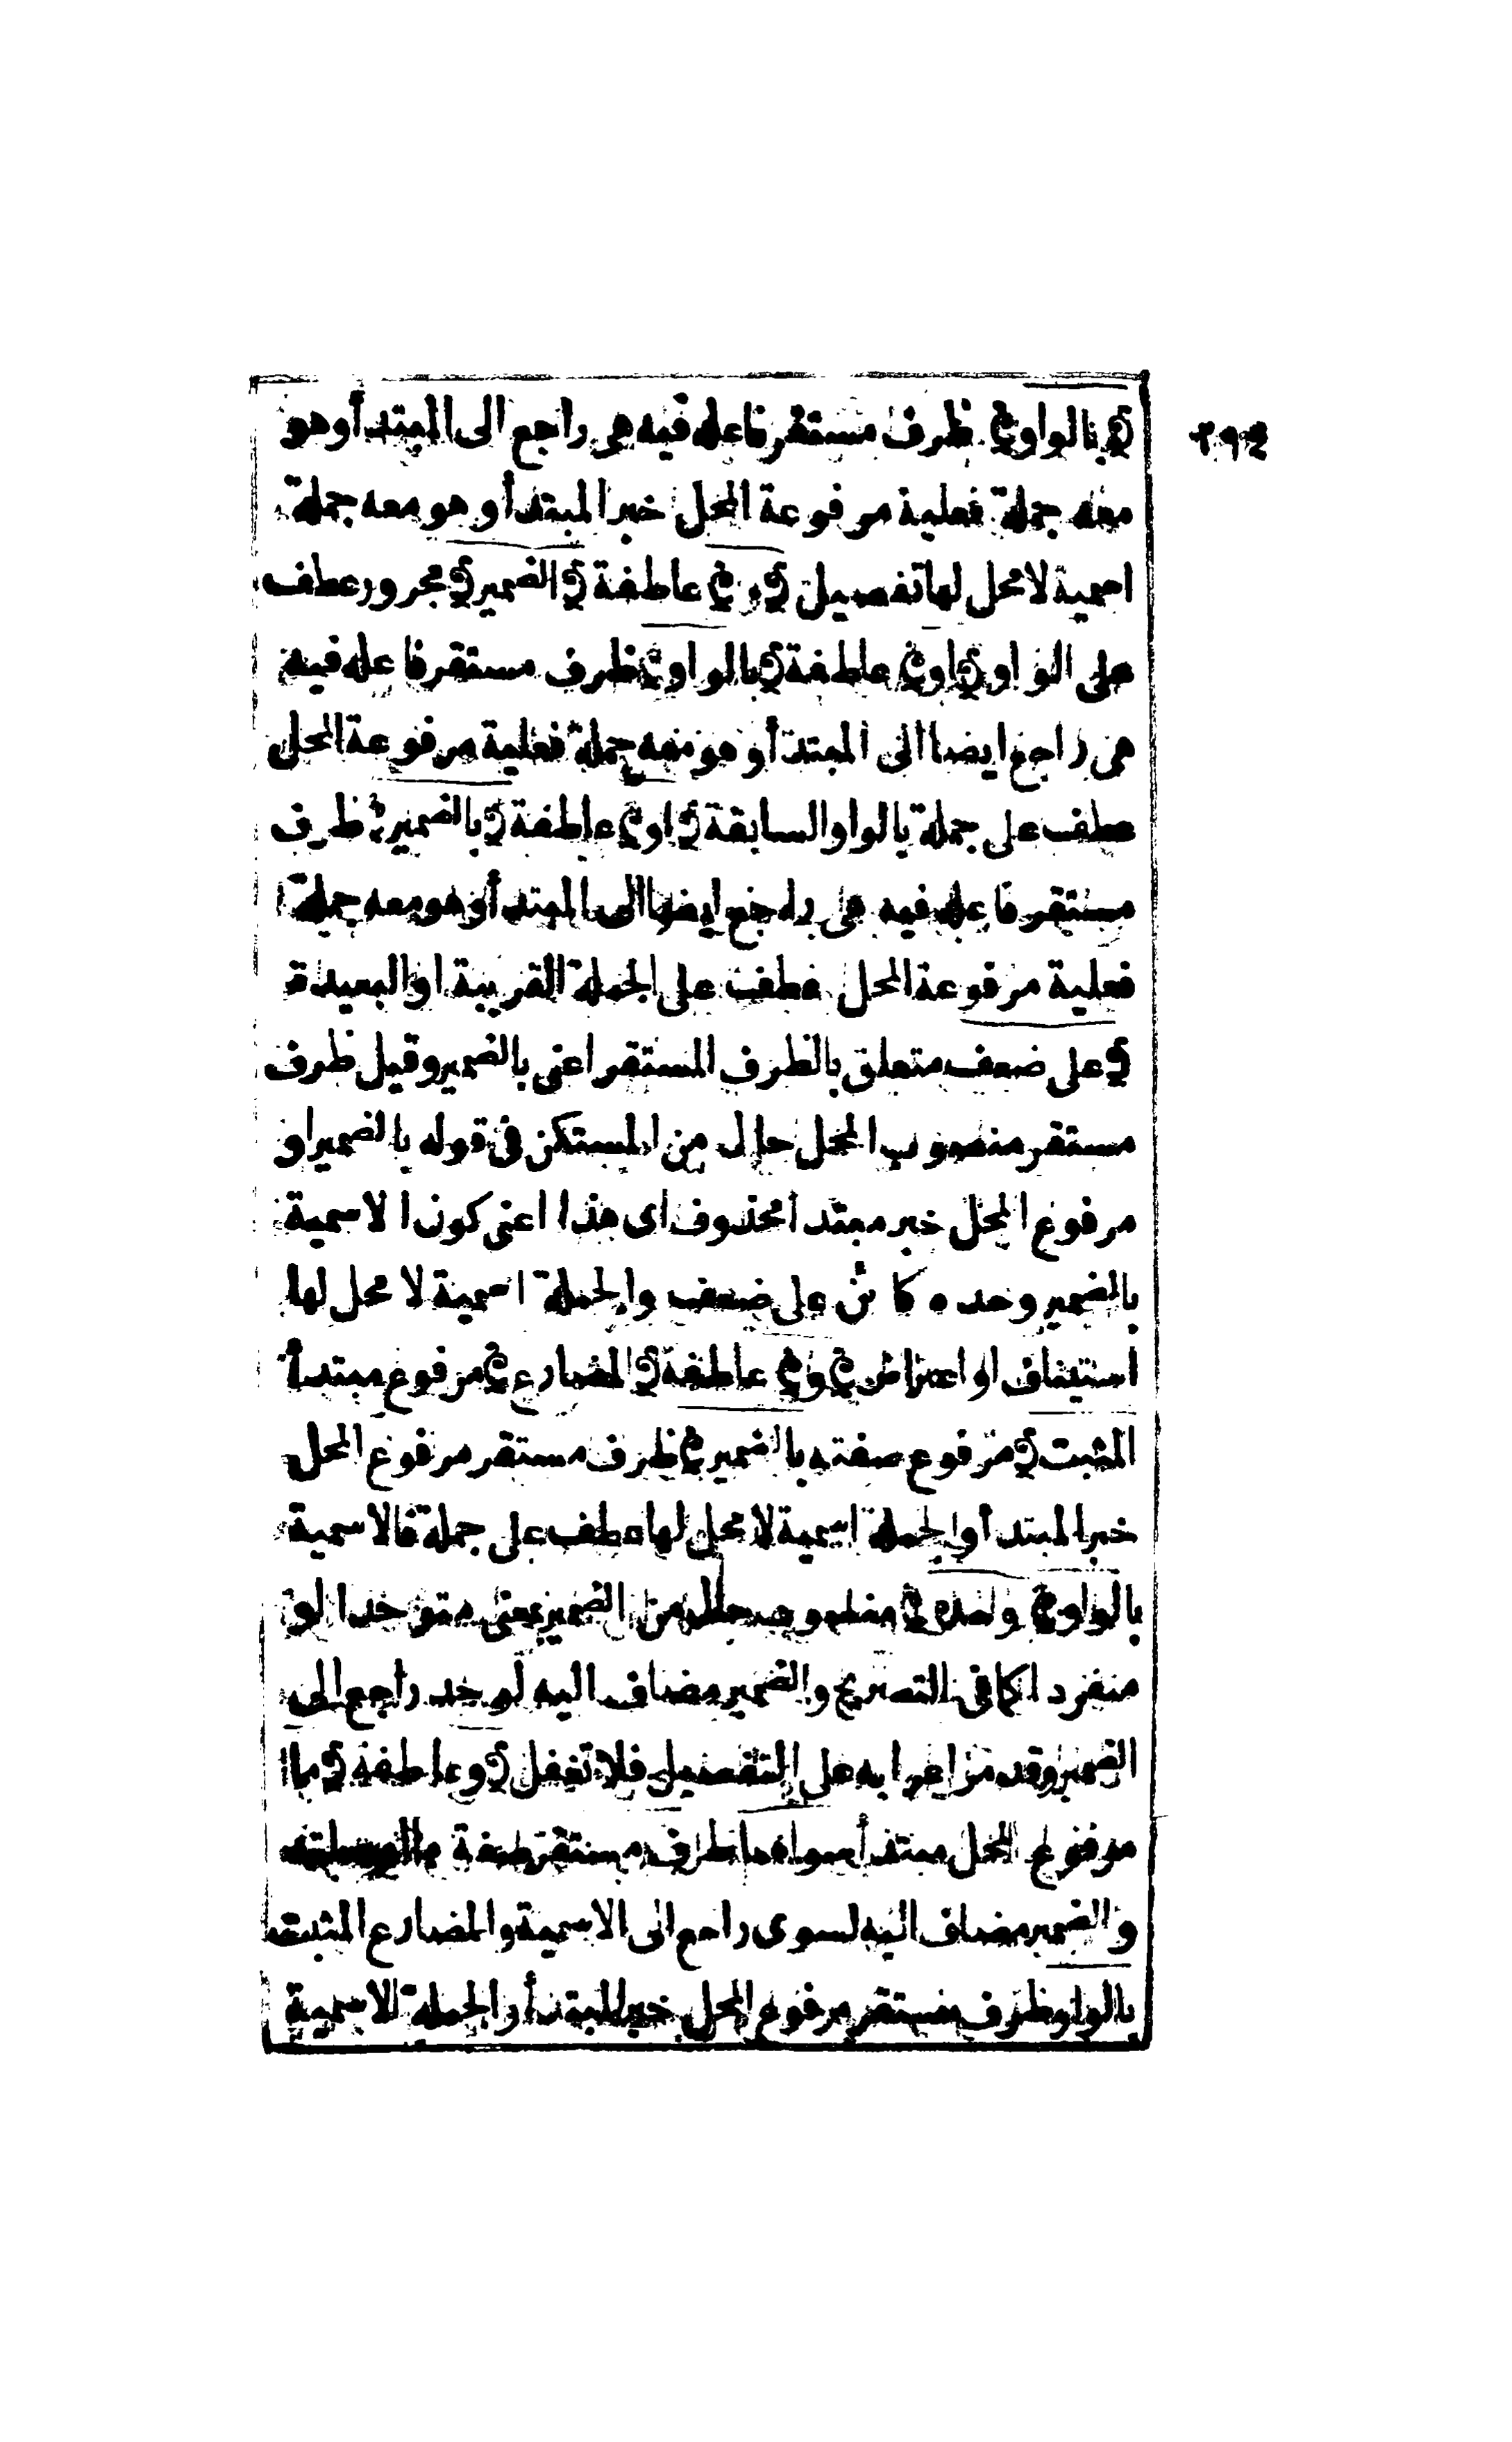 ٢٩٤
﴿بالواو﴾ ظرف مستقر فاعله فيه هى راجع الى المبتدأ وهو
معه جملة فعلية مرفوعة المحل خبر المبتدأ وهو معه جملة
اسمية لامحل لها تفصيل ﴿و﴾ عاطفة ﴿الضمير﴾ مجرور عطف
على الواو ﴿او﴾ عاطفة ﴿بالواو﴾ ظرف مستقر فاعله فيه
هى راجع ايضا الى المبتدأ وهو معه جملة فعلية مرفوعة المحل
عطف على جملة بالواو السابقة ﴿او﴾ عاطفة ﴿بالضمير﴾ ظرف
مستقر فاعله فيه هى راجع ايضا الى المبتدأ وهو معه جملة
فعلية مرفوعة المحل عطف على الجملة القريبة او البعيدة
﴿على ضعف متعلق بالظرف المستقر اعنى بالضمير وقيل ظرف
مستقر منصوب المحل حال من المستكن فى قوله بالضمير او
مرفوع المحل خبر مبتدأ محذوف اى هذا اعنى كون الاسمية
بالضمير وحده كائن على ضعف والجملة اسمية لا محل لها
استيناف او اعتراض ﴿و﴾ عاطفة ﴿المضارع﴾ مرفوع مبتدأ
المثبت﴾ مرفوع صفته بالضمير﴾ ظرف مستقر مرفوع المحل
خبر المبتدأ والجملة اسمية لا محل لها عطف على جملة فالاسمية
بالواو﴾ وحده﴾ منصوب حال من الضمير بمعنى متوحدا او
منفردا كما فى التصريح والضمير مضاف اليه لوحد راجع الى
الضمير وقد مر اعرابه على التفصيل فلا تغفل ﴿و عاطفة ﴿ما
مرفوع المحل مبتدأ سواهما ظرف مستقر صفة ما
والضمير مضاف اليه لسوى راجع الى الاسمية والمضارع المثبت
بالواو ظرف مستقر مرفوع المحل خبر المبتدأ والجملة الاسمية